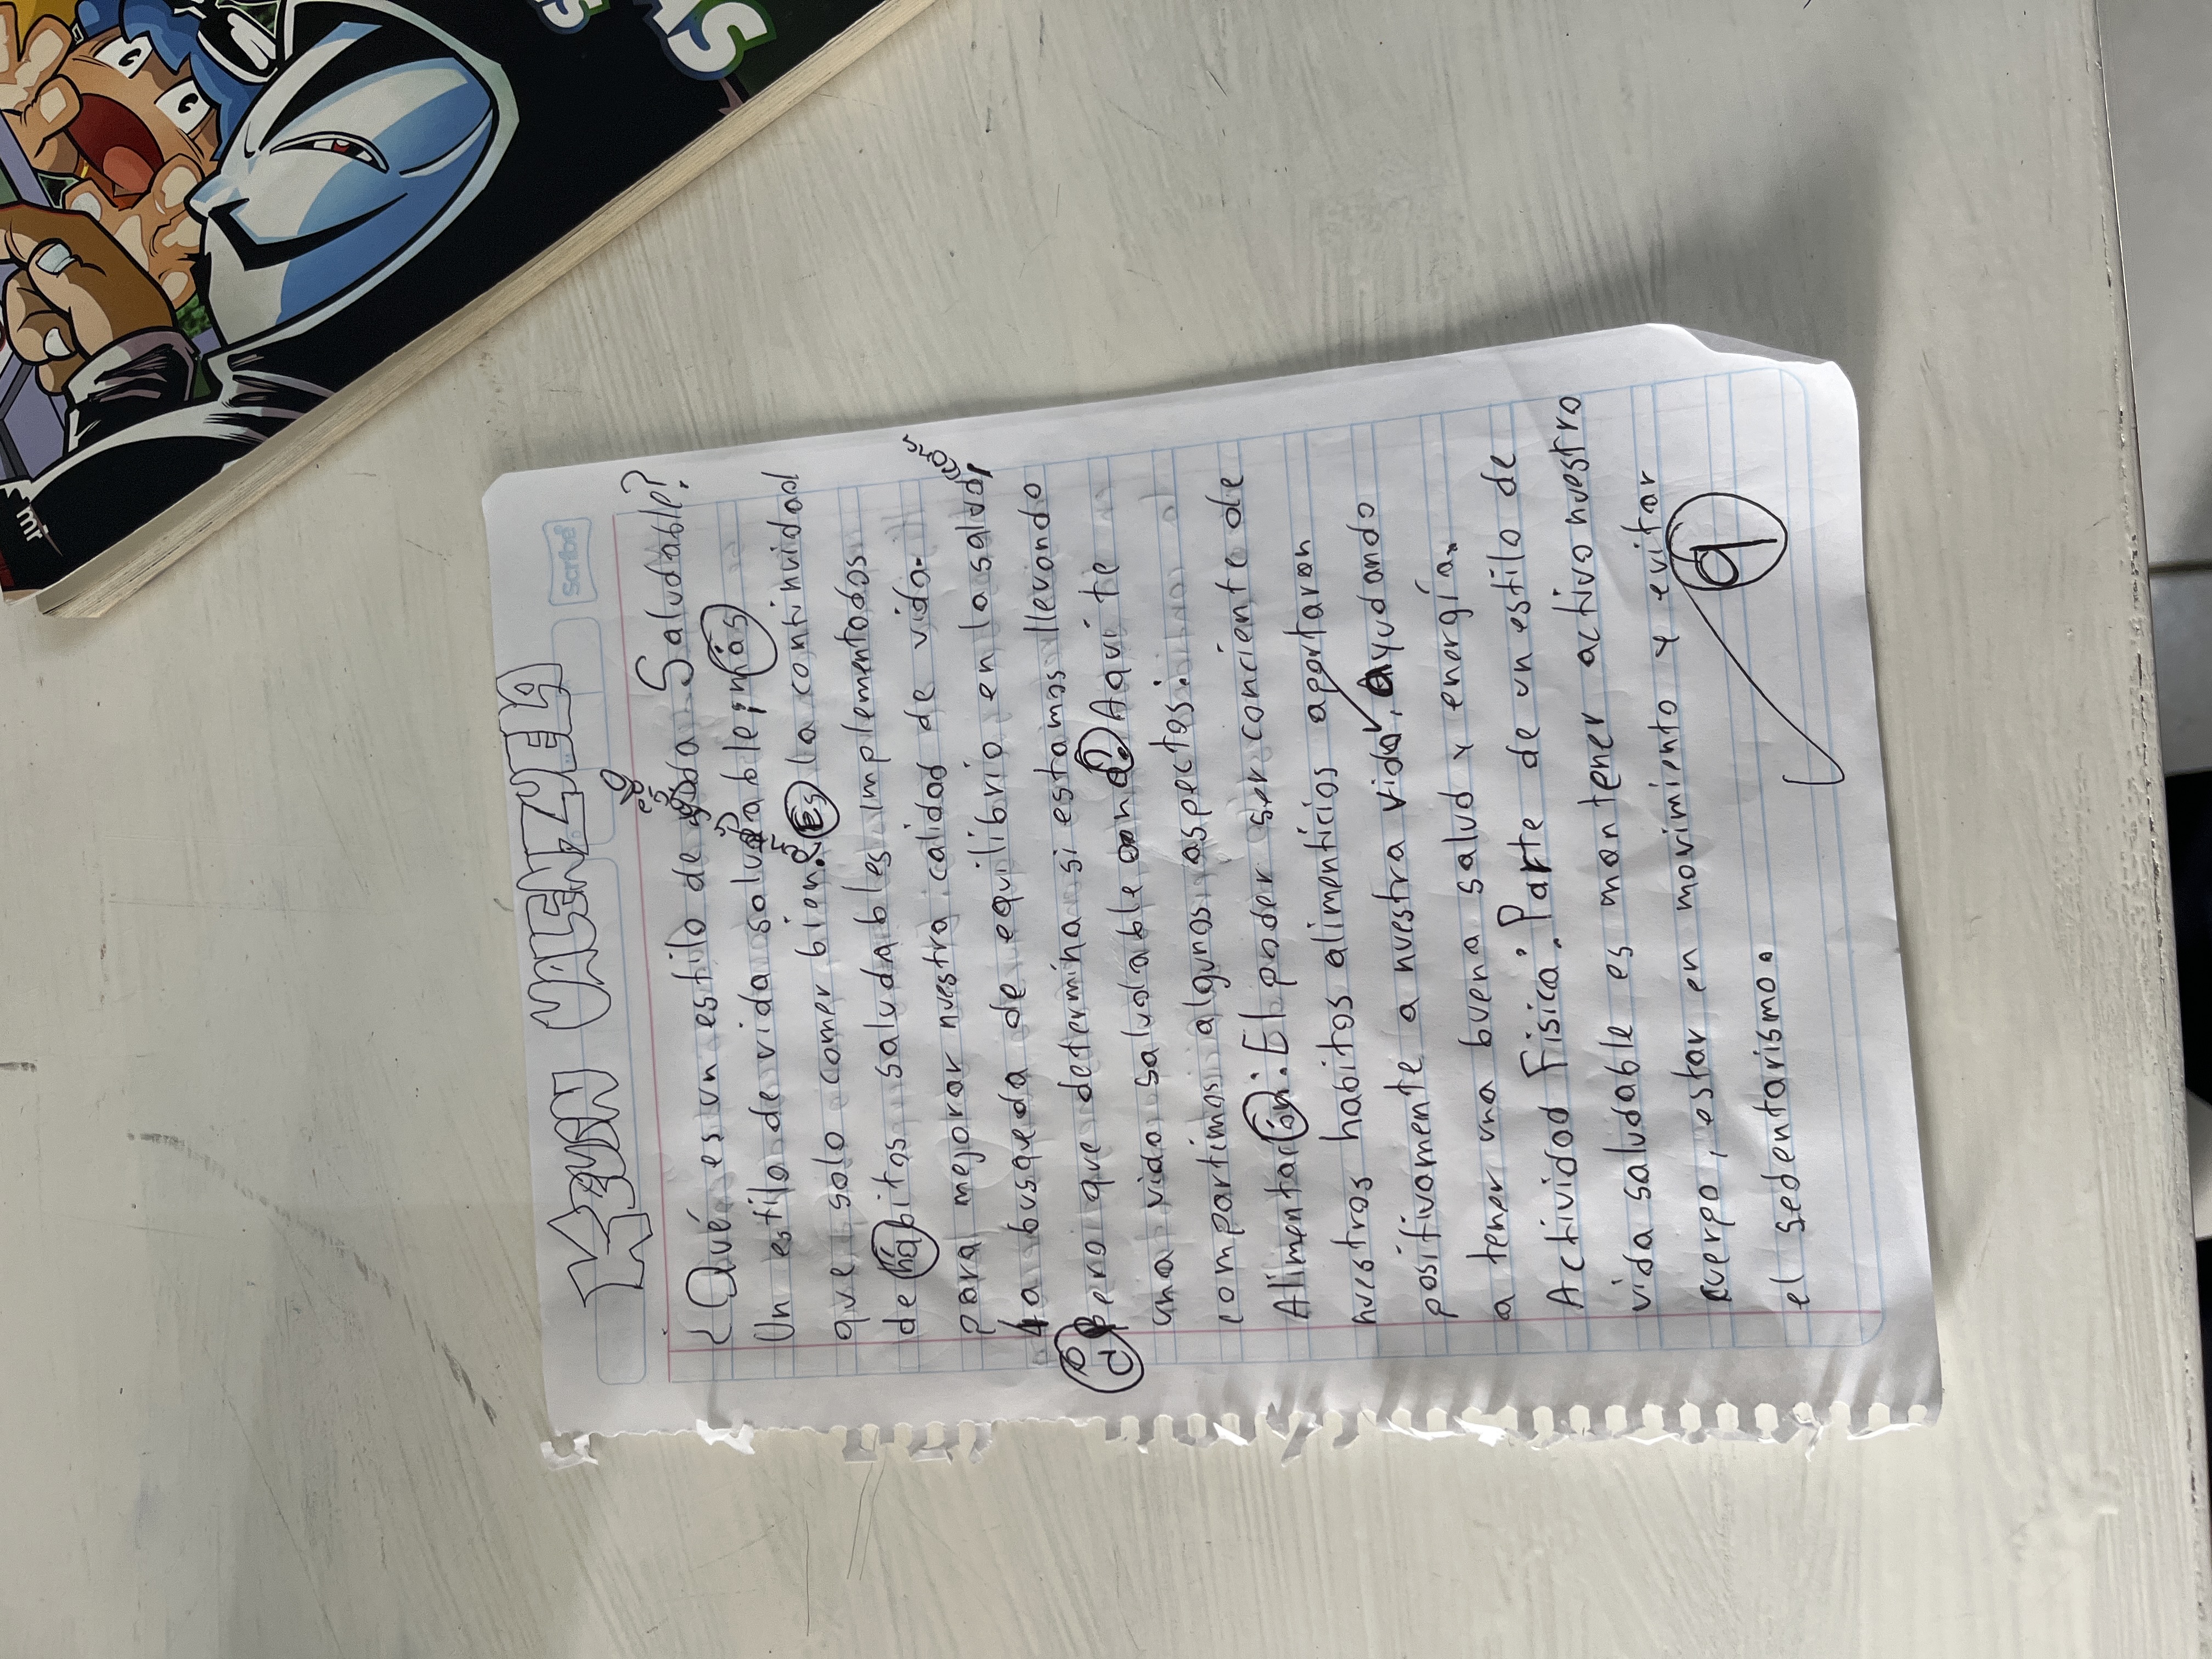 AS
mr
Scribe
¿Qué es un estilo de vida Saludable?
Un estilo de vida saludable, más
que solo comer bien. Es la continuidad
de hábitos saludables implementados
para mejorar nuestra calidad de vida.
La busqueda de equilibrio en la salud,
¿Pero que determina si estamos llevando
una vida saludable o no? Aqui te
compartimos algunos aspectos:
Alimentación: El poder ser conciente de
nuestros habitos alimenticios aportaran
positivamente a nuestra vida, ayudando
a tener una buena salud y energía.
Actividad Fisica: Parte de un estilo de
vida saludable es mantener activo nuestro
cuerpo, estar en movimiento y evitar
el sedentarismo.
9